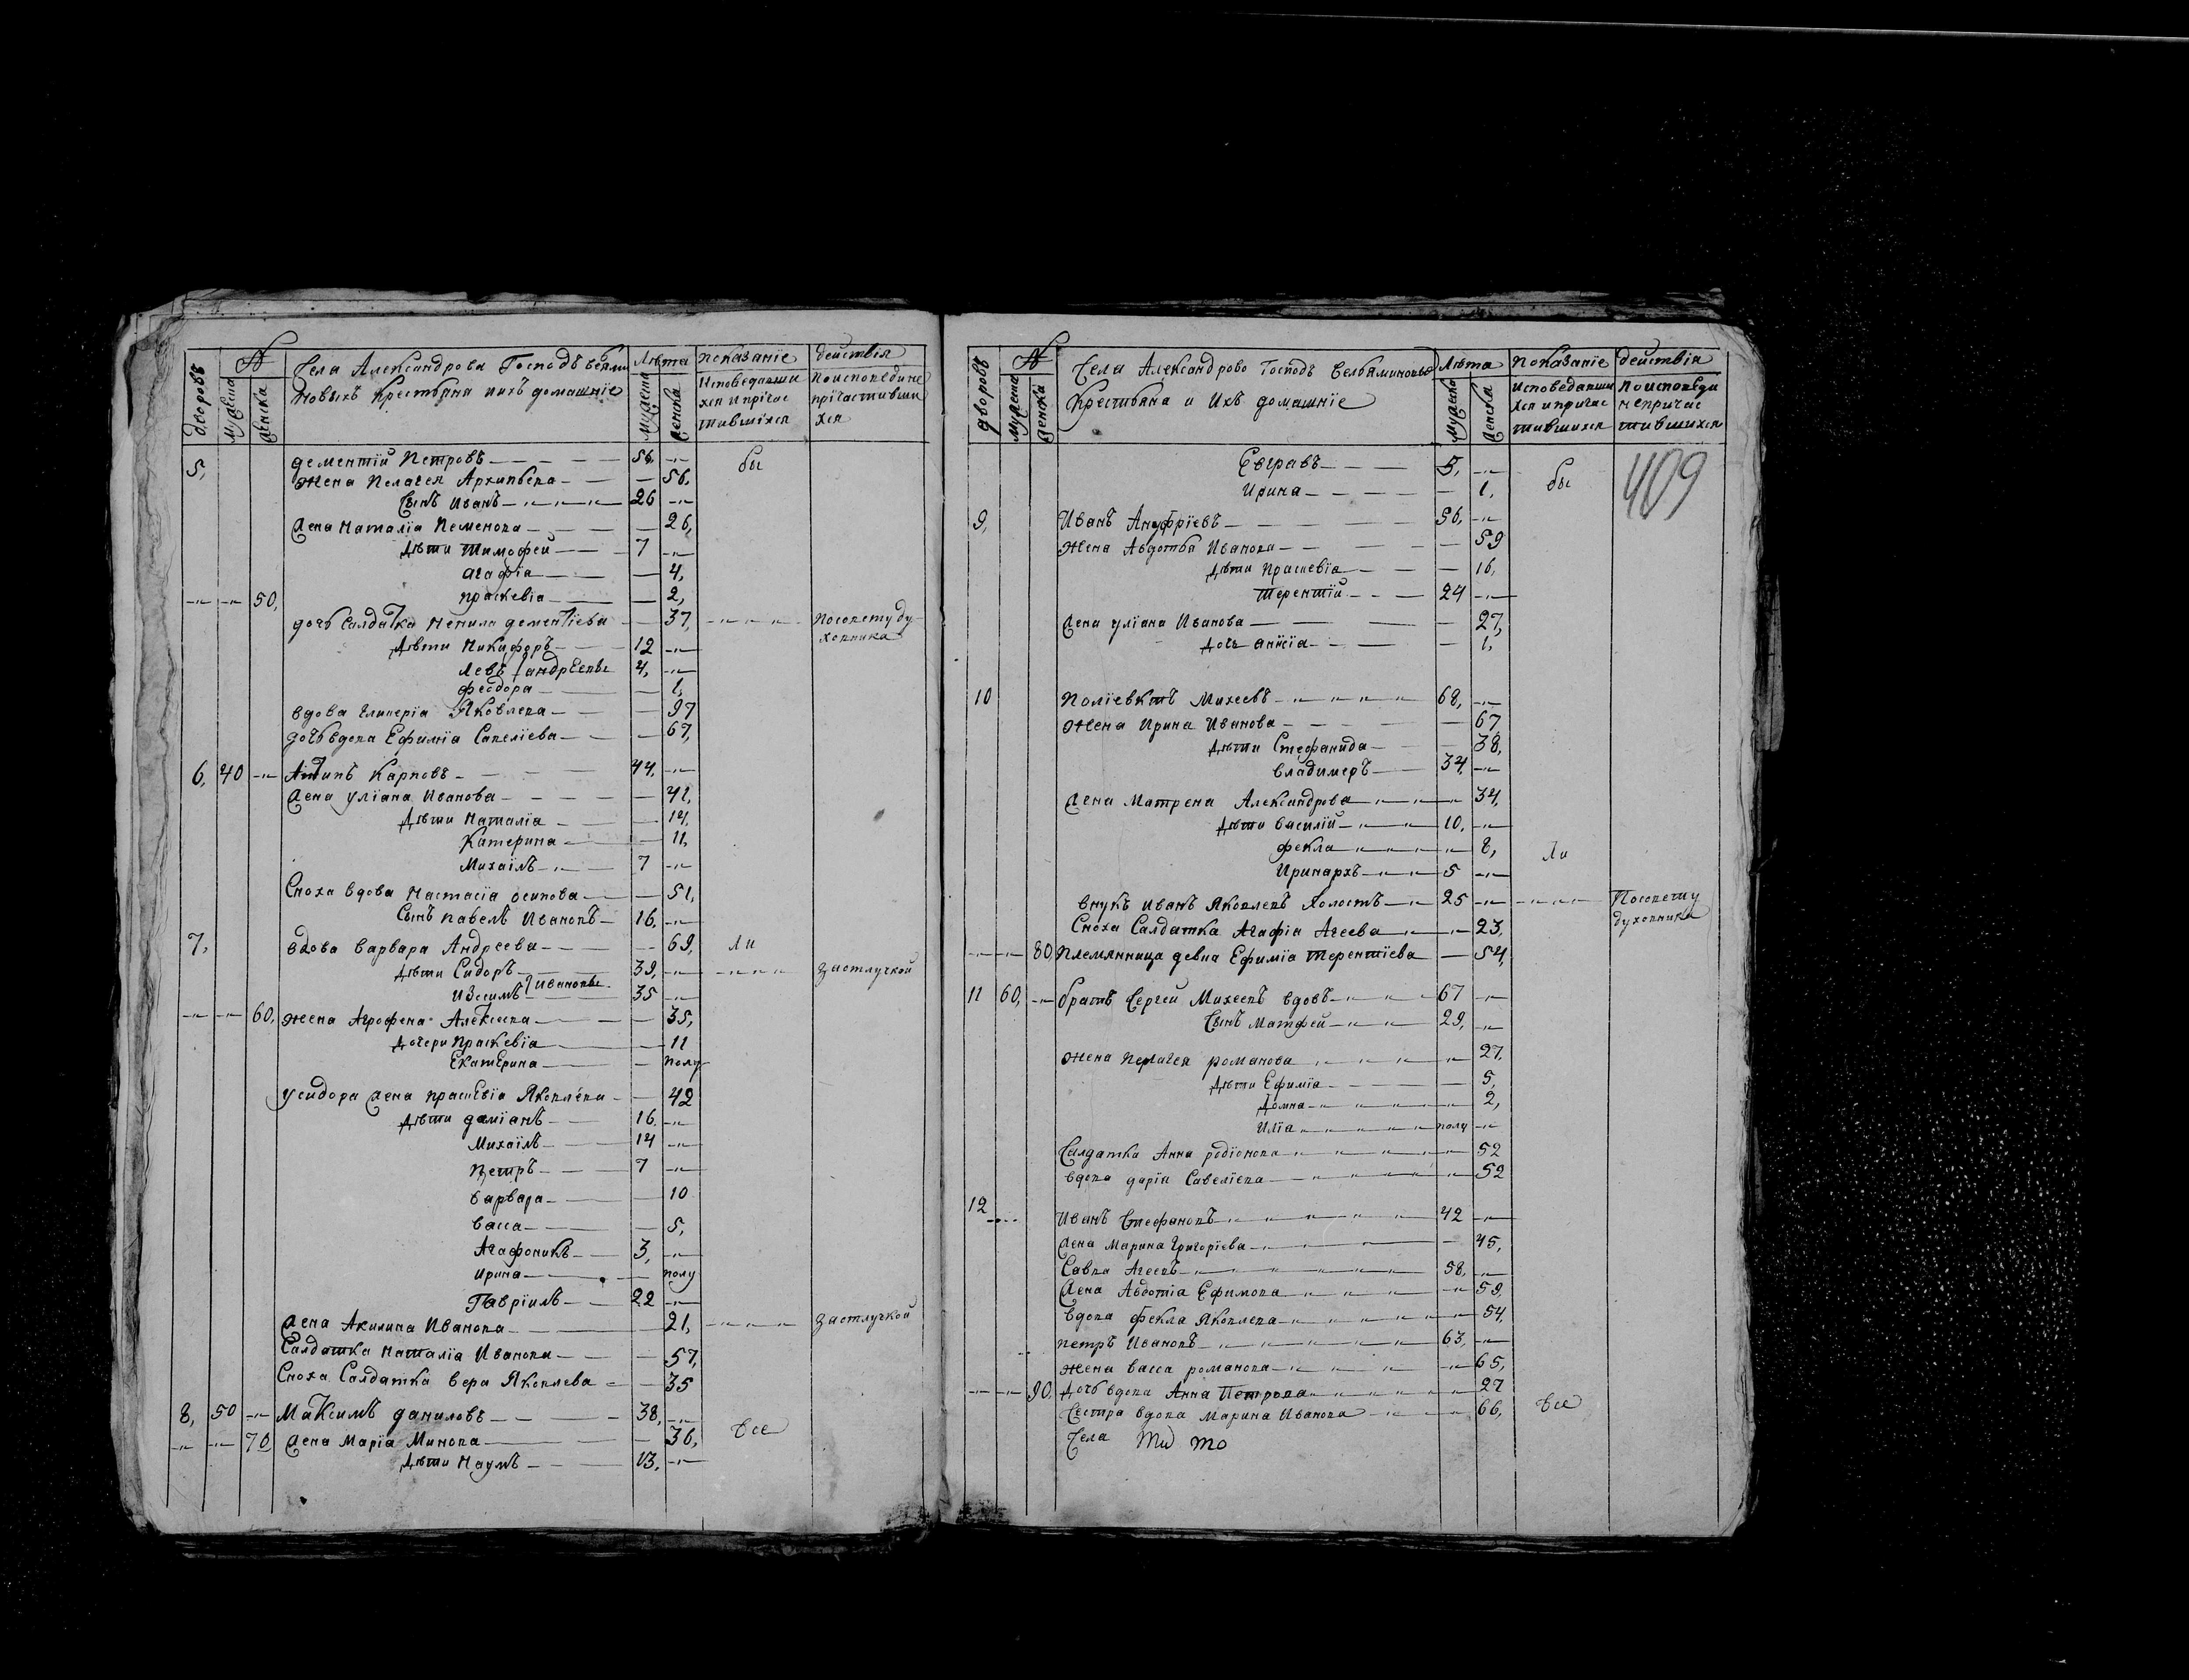 дворовъ № Села Александрова Господъ вельями Лѣта показанiе действiя
мужеска женска новыхъ Крестьяня ихъ домашнiе мужеска женска исповедавши по исповеди не
хся и прiчас прiчастивши
тившiхся хся
5, дементiй Петровъ 56, бы
жена Пелагея Архипьева 56,
Сынъ Иванъ 26
жена Наталiа Пеменова 26,
дѣти тимофей 7
агафiа 4,
50, праскевiа 2,
дочь Салдатка Ненила дементiева 37, посовету ду
ховника
дѣти Никифоръ 12
Левъ андреевы 4,
феодора 1,
вдова гликерiа Яковлева 97
дочь вдова Ефимiа Савелiева 67,
6, 40 Антипъ Карповъ 44,
жена улiана Иванова 41,
дѣти Наталiа 14,
Катерина 11,
Михаiлъ 7
Сноха вдова Настасiа осипова 51,
Сынъ павелъ Ивановъ 16,
7, вдова варвара Андреева 69, ли
дѣти Сидоръ 39, заотлучкой
Изосимъ Ивановы 35
60, жена Агрофена Алексеева 35,
дочери праскевiа 11
Екатерина полу
усидора жена праскевiа Яковлева 42
дѣти дамiанъ 16.
Михаiлъ 14
Петръ 7
варвара 10
васса 5,
Агафоникъ 3,
ирина полу
Гаврiилъ 22
жена Акилина Иванова 21, заотлучкой
Салдатка наталiа Иванова 57,
Сноха Салдатка вера Яковлева 35
8, 50 Максимъ даниловъ 38,
70 жена Марiа Минова 36, все
дѣти Наумъ 13,
дворовъ № Села Александрово Господъ вельяминовыхъ Лѣта показанiе действiя
мужеска женска Крестьяна и Ихъ домашнiе мужеска женска исповедавши по исповеди
хся и причас не причас
тившихся тившихся
Евграѳъ 5, бы 409
Ирина 1,
9, Иванъ Ануфрiевъ 56,
жена Авдотья Иванова 59
дѣти Праскевiа 16,
терентiй 24
жена улiана Иванова 27,
дочь анисiа 1,
10 Полiевктъ Михеевъ 68,
жена Ирина Иванова 67,
дѣти Стефанида 38,
владимеръ 34,
жена Матрена Александрова 34,
дѣти василiй 10,
фекла 8, ли
Иринархъ 5
внукъ иванъ Яковлевъ холостъ 25 Посовету
духовника
Сноха Салдатка Агафiа Агеева 23,
80, Племянница девка Ефимiа терентiева 54,
11 60, братъ Сергей Михеевъ вдовъ 67
Сынъ Матфей 29,
жена пелагея романова 27,
дѣти Ефимiа 5,
Домна 2,
Илiа полу
Салдатка Анна родiонова 52
вдова дарiа Савелiева 52
12 Иванъ Стефановъ 42
жена Марина григорiева 45,
Савва Агеевъ 58,
жена Авдотiа Ефимова 59,
вдова фекла Яковлева 54,
петръ Ивановъ 63,
жена васса романова 65,
90, дочь вдова Анна Петрова 27
Сестра вдова Марина Иванова 66, все
Села